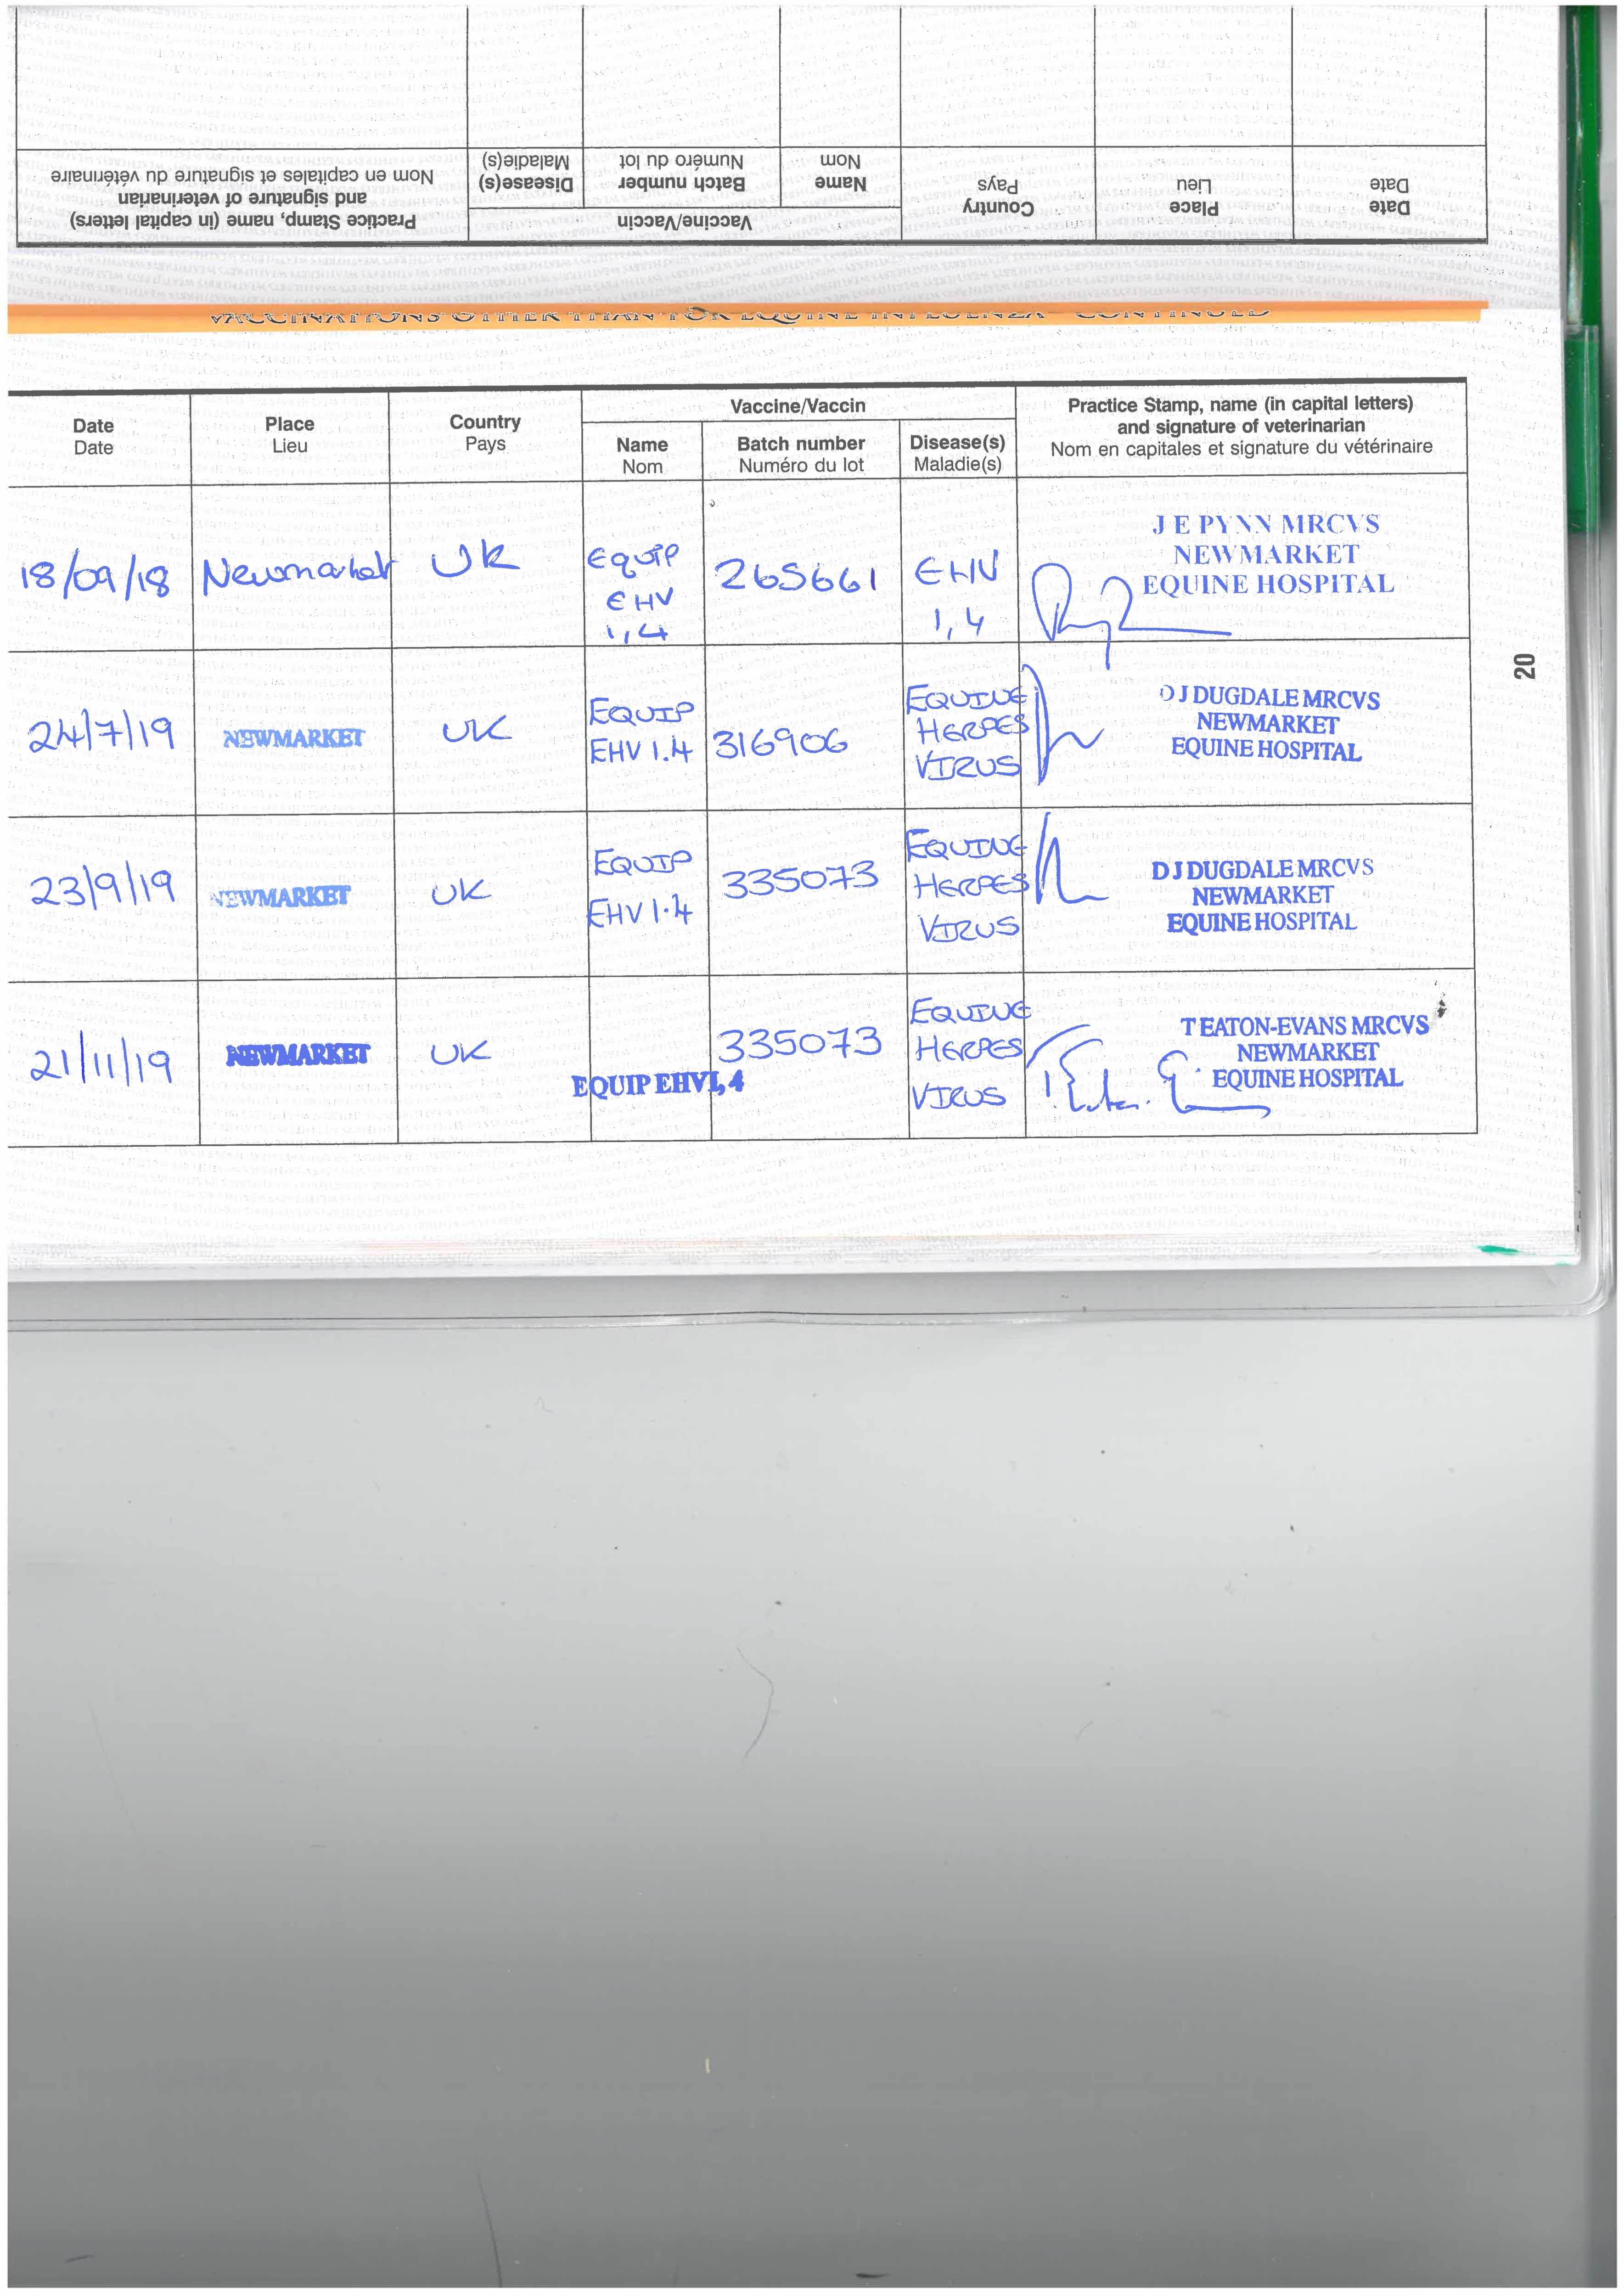 Practice Stamp, name (in capital letters)
and signature of veterinarian
Nom en capitales et signature du vétérinaire
Vaccine/Vaccin
Disease(s)
Maladie(s)
Batch number
Numéro du lot
Name
Nom
Country
Pays
Place
Lieu
Date
Date
VACCINATIONS OTHER THAN FOR EQUINE INFLUENZA - CONTINUED
Date
Date
Place
Lieu
Country
Pays
Vaccine/Vaccin
Name
Nom
Batch number
Numéro du lot
Disease(s)
Maladie(s)
Practice Stamp, name (in capital letters)
and signature of veterinarian
Nom en capitales et signature du vétérinaire
18/09/18
Newmarket
UK
Equip
EHV
1,4
265661
EHV
1,4
J E PYNN MRCVS
NEWMARKET
EQUINE HOSPITAL
24/7/19
NEWMARKET
UK
EQUIP
EHV 1.4
316906
EQUINE
HERPES
VIRUS
D J DUGDALE MRCVS
NEWMARKET
EQUINE HOSPITAL
23/9/19
NEWMARKET
UK
EQUIP
EHV 1.4
335073
EQUINE
HERPES
VIRUS
D J DUGDALE MRCVS
NEWMARKET
EQUINE HOSPITAL
21/11/19
NEWMARKET
UK
EQUIP EHV1,4
335073
EQUINE
HERPES
VIRUS
T EATON-EVANS MRCVS
NEWMARKET
EQUINE HOSPITAL
20